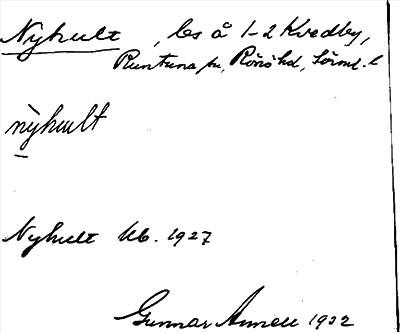 Nyhult, ls å 1-2 Kvedby,
Runtuna sn, Rönö hd, Södml. l
nỳhult
Nyhult Ub. 1927
Gunnar Annell 1932